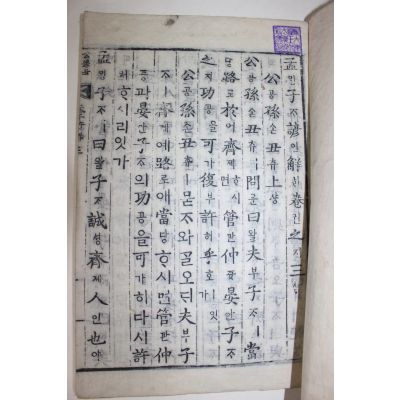 孟ᄆᆡᆼ子ᄌᆞ諺언解ᄒᆡ卷권之지三삼
公공孫손丑츄上샹
公공孫손丑츄ㅣ問문曰왈夫부子ᄌᆞㅣ當
당路로於어齊졔ᄒᆞ시면管관仲듕晏안子ᄌᆞ
之지功공을可가復부許허乎호ㅣ잇가
公공孫손丑츄ㅣ묻ᄌᆞ와ᄀᆞᆯ오ᄃᆡ夫부子
ᄌᆞㅣ齊졔예路로애當당ᄒᆞ시면管관仲
듕과晏안子ᄌᆞ의功공을可가히다시許
허ᄒᆞ시리잇가
孟ᄆᆡᆼ子ᄌᆞㅣ曰왈子ᄌᆞㅣ誠셩齊졔人인也야
公孫丑